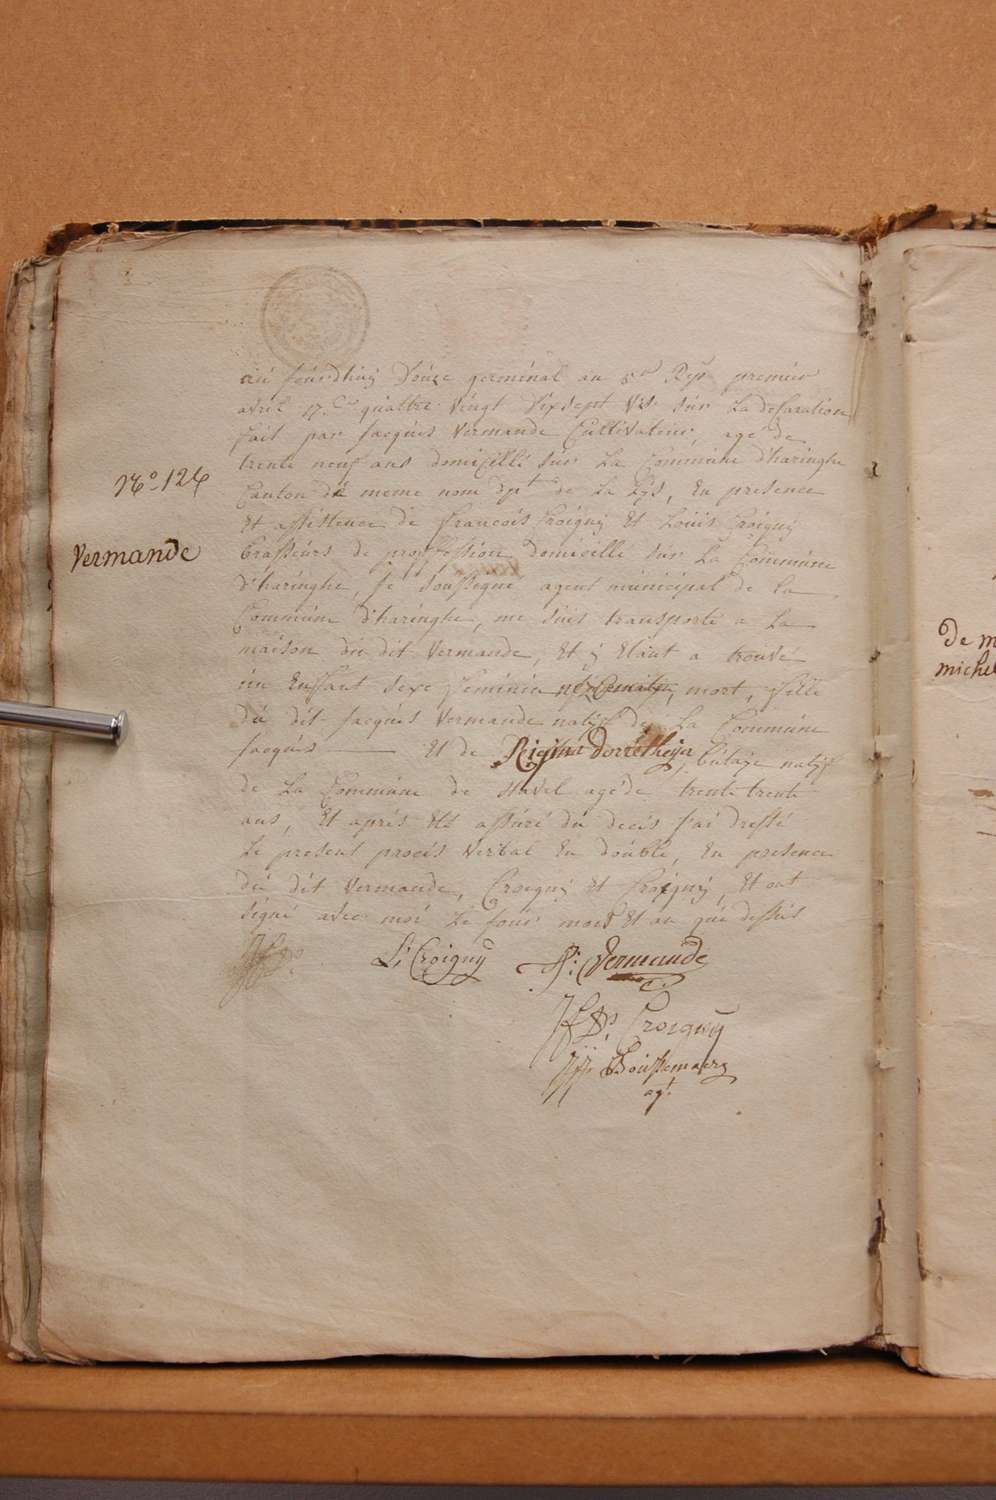 N.o 124
Vermande
au jourdhuy Douze germinal an 5me Rep premier
avril 17.Ct quattre vingt dixsept vst sur La declaration
fait par Jacques Vermande Cultivateur, agé de
trente neuf ans domicillé sur La Commune d'haringhe
Canton du meme nom dpt de La Lys, En presence
Et assistence de francois Croigny Et Louis Croigny
brasseurs de proffession domicille sur La Commune
d'haringhe, je soussegné agent municipal de La
Commune d'haringhe, me suis transporté a La
maison du dit Vermande, Et y Etant a trouvé
un Enffant sexe feminin mort, fille
du dit Jacques Vermande natif de La Commune
Jacques Et de Rigina natif
de La Commune de agé de trente trente
ans, Et aprés Etz assuré du decés j'ai dressé
Le present procés Verbal En double, En presence
du dit Vermande, Croigny Et Croigny, Et ont
signé avec moi Le jour mois Et an que dessus
L; Croigny P: Vermande
Croigny
Boussemaere
agt
De m
michel